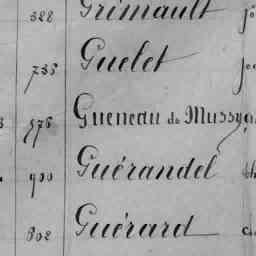 328 Grimault
735 Guelet
576 Gueneau de Mussy
900 Guérandel
802 Guérard